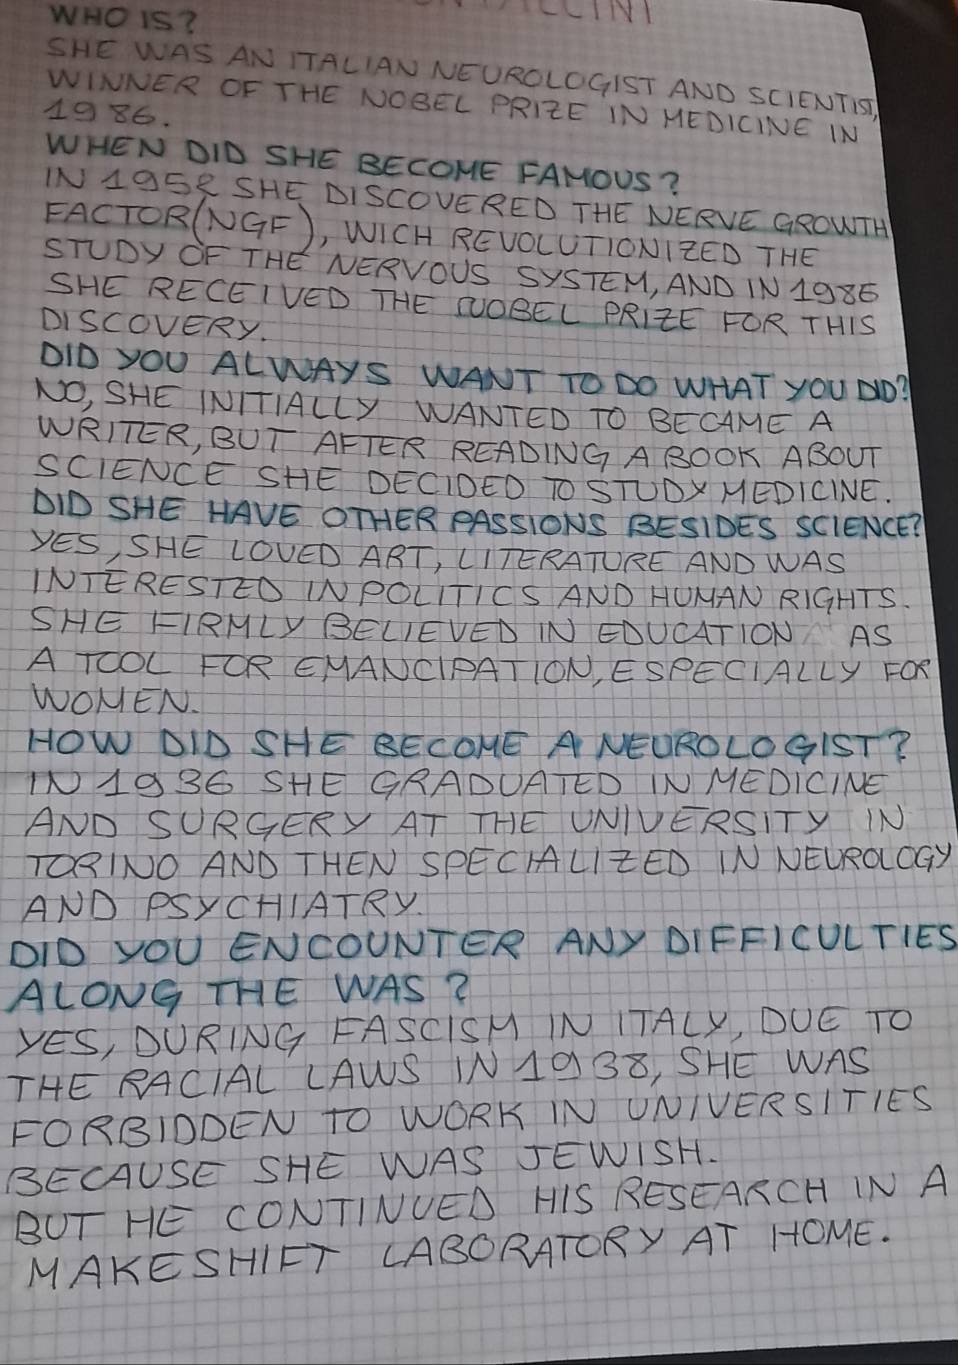 WHO IS?
SHE WAS AN ITALIAN NEUROLOGIST AND SCIENTIST,
WINNER OF THE NOBEL PRIZE IN MEDICINE IN
1986.
WHEN DID SHE BECOME FAMOUS?
IN 1952 SHE DISCOVERED THE NERVE GROWTH
FACTOR (NGF), WICH REVOLUTIONIZED THE
STUDY OF THE NERVOUS SYSTEM, AND IN 1986
SHE RECEIVED THE NOBEL PRIZE FOR THIS
DISCOVERY.
DID YOU ALWAYS WANT TO DO WHAT YOU DID?
NO, SHE INITIALLY WANTED TO BECAME A
WRITER, BUT AFTER READING A BOOK ABOUT
SCIENCE SHE DECIDED TO STUDY MEDICINE.
DID SHE HAVE OTHER PASSIONS BESIDES SCIENCE?
YES, SHE LOVED ART, LITERATURE AND WAS
INTERESTED IN POLITICS AND HUMAN RIGHTS.
SHE FIRMLY BELIEVED IN EDUCATION AS
A TOOL FOR EMANCIPATION, ESPECIALLY FOR
WOMEN.
HOW DID SHE BECOME A NEUROLOGIST?
IN 1936 SHE GRADUATED IN MEDICINE
AND SURGERY AT THE UNIVERSITY IN
TORINO AND THEN SPECIALIZED IN NEUROLOGY
AND PSYCHIATRY.
DID YOU ENCOUNTER ANY DIFFICULTIES
ALONG THE WAS?
YES, DURING FASCISM IN ITALY, DUE TO
THE RACIAL LAWS IN 1938, SHE WAS
FORBIDDEN TO WORK IN UNIVERSITIES
BECAUSE SHE WAS JEWISH.
BUT HE CONTINUED HIS RESEARCH IN A
MAKESHIFT LABORATORY AT HOME.